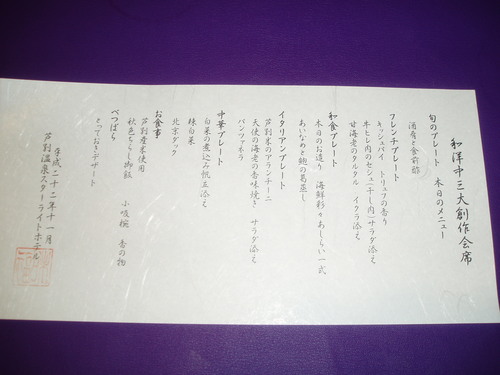 和洋中三大創作会席
旬のプレート　本日のメニュー
酒肴と食前酢
フレンチプレート
キッシュパイ　トリュフの香り
牛ヒレ肉のセシュ(干し肉)サラダ添え
甘海老のタルタル　イクラ添え
和食プレート
本日のお造り　海鮮彩々あしらい一式
あいなめと鮑の葛蒸し
イタリアンプレート
芦別米のアランチーニ
天使の海老の香味焼き　サラダ添え
パンツァネラ
中華プレート
白菜の煮込み帆立添え
棟白菜
北京ダック
お食事
芦別産米使用
秋色ちらし御飯　小吸椀　香の物
べつばら
とっておきデザート
平成二十二年十一月
芦別温泉スターライトホテル